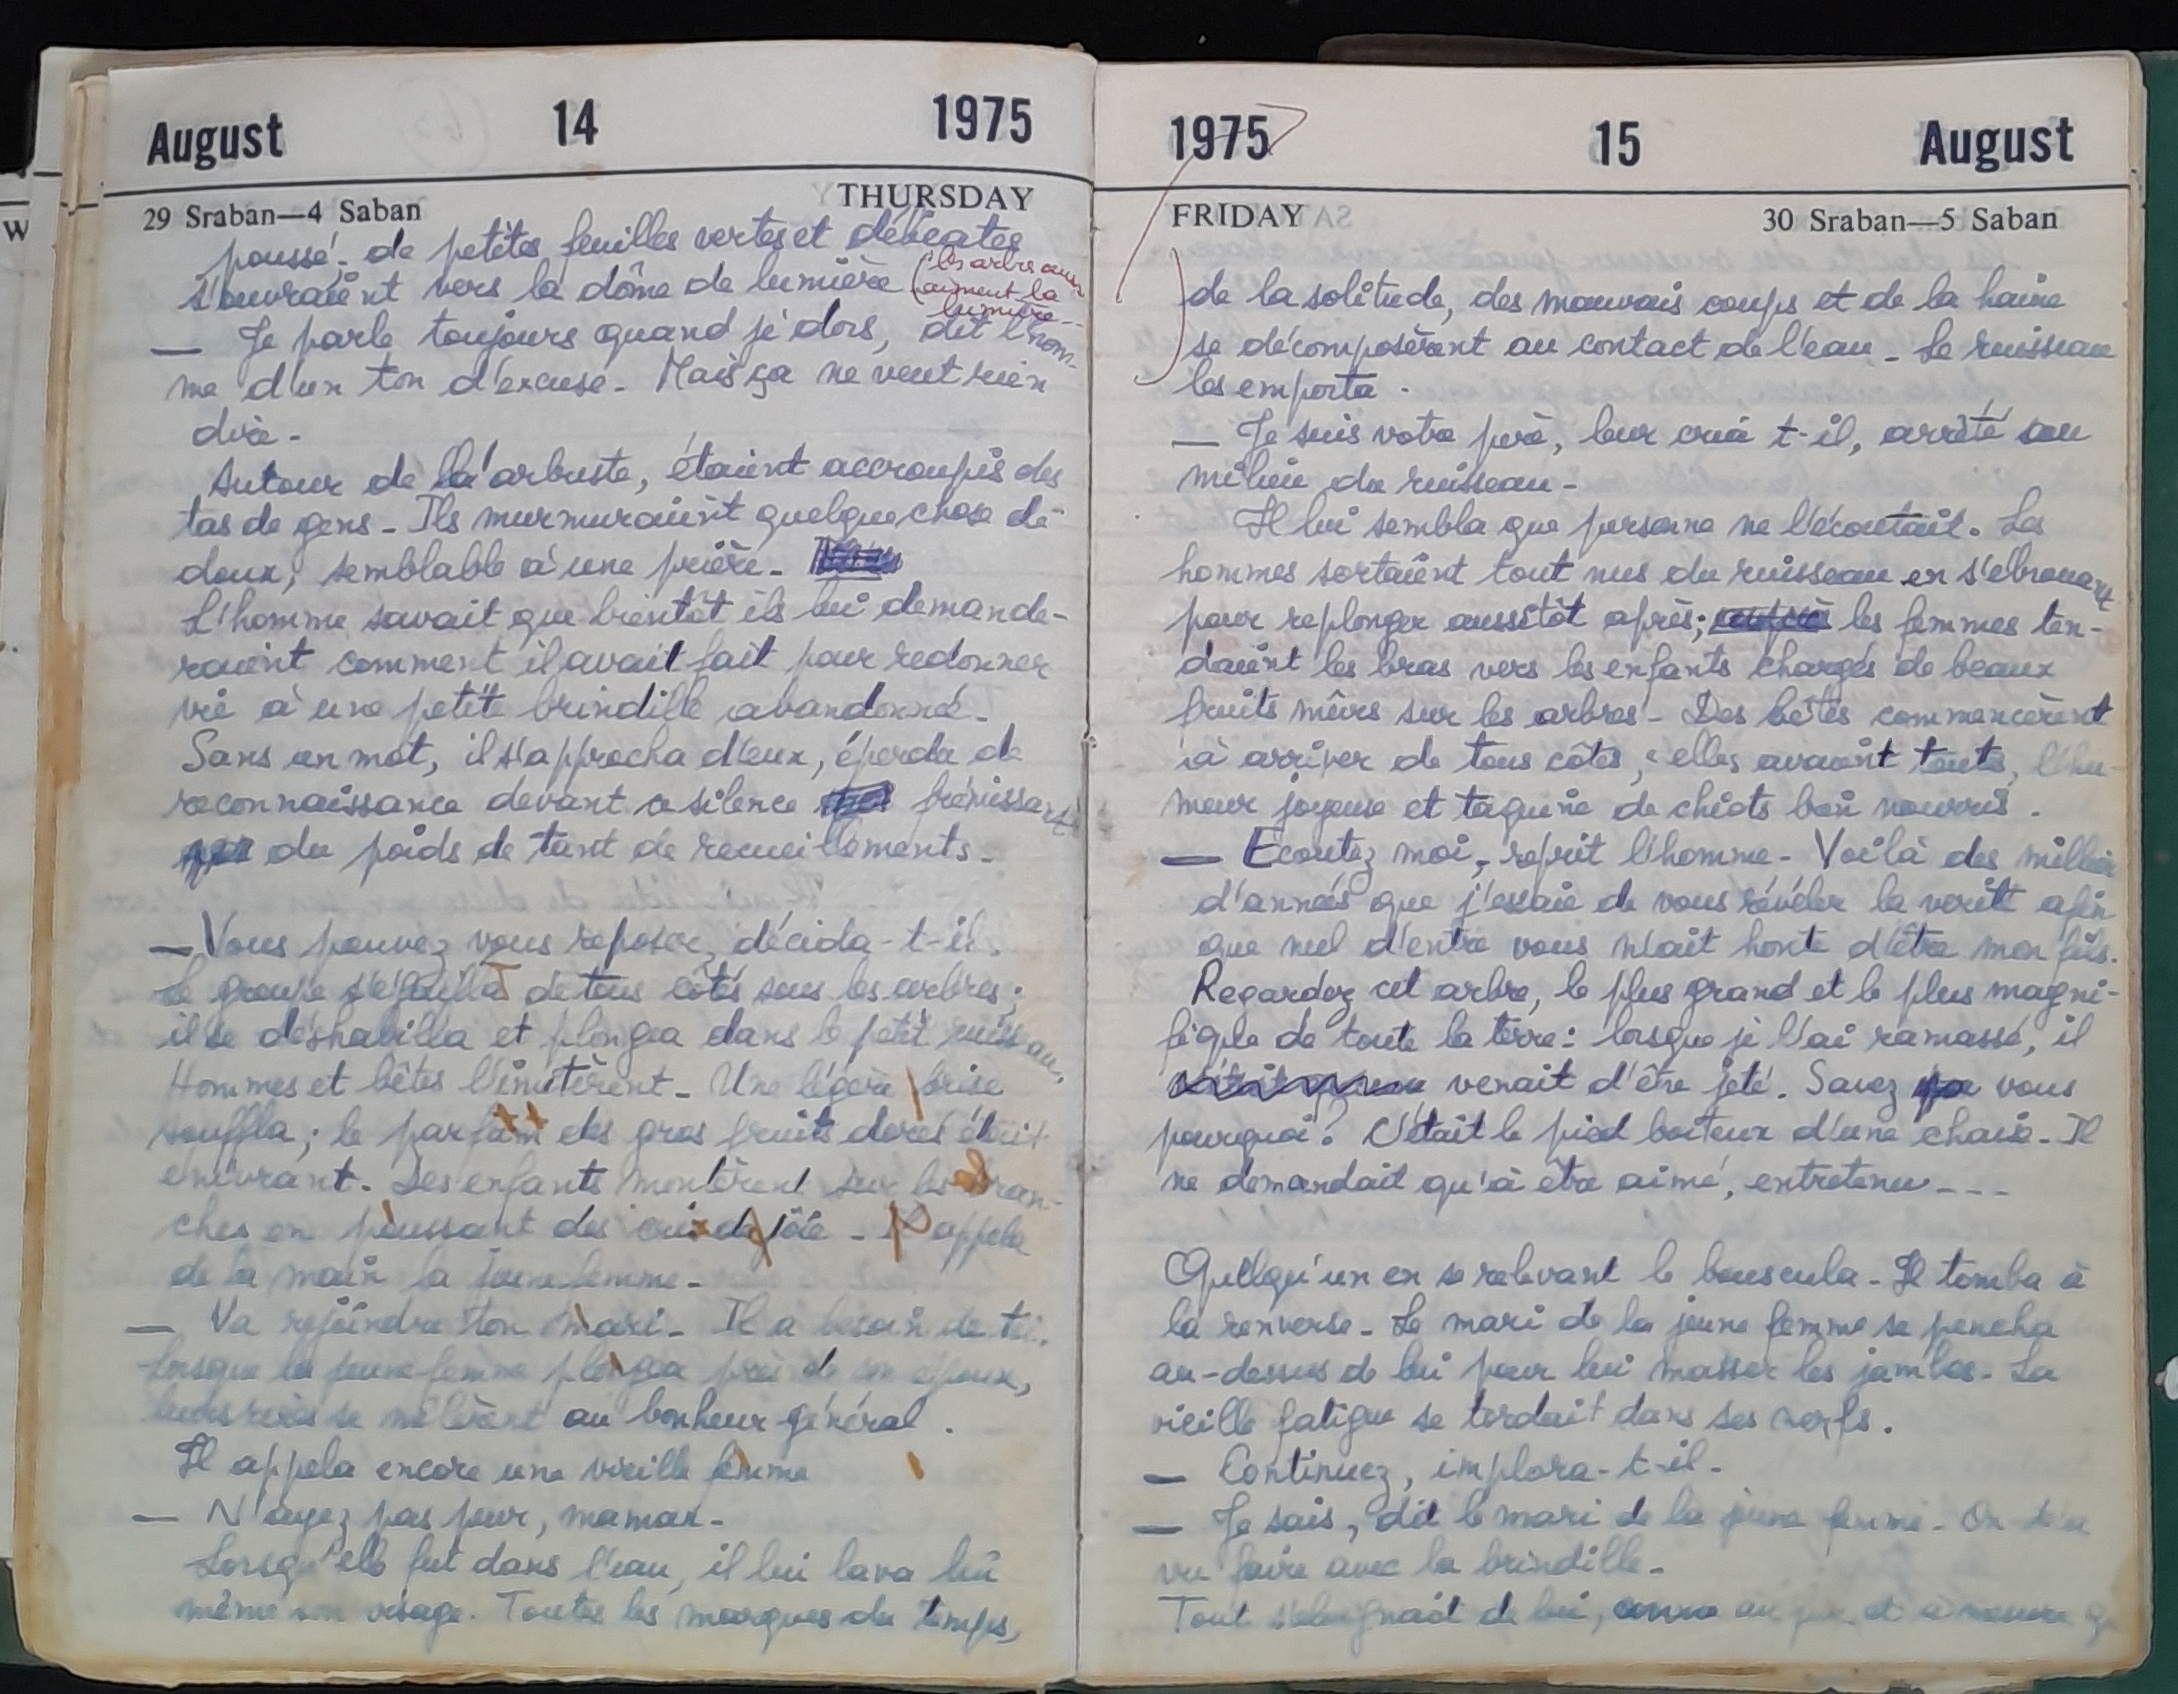 August 14 1975
29 Sraban—4 Saban THURSDAY
poussé. de petites feuilles vertes et délicates
s'ouvraient vers la dôme de lumière (les arbres aussi
aiment la
lumière--
— Je parle toujours quand je dors, dit l'hom-
me d'un ton d'excuse. Mais ça ne veut rien
dire.
Autour de l'arbuste, étaient accroupis des
tas de gens. Ils murmuraient quelque chose de
doux, semblable à une prière.
L'homme savait que bientôt ils lui demande-
raient comment il avait fait pour redonner
vie à une petite brindille abandonnée.
Sans un mot, il s'approcha d'eux, éperdu de
reconnaissance devant ce silence frémissant
du poids de tant de recueillements.
— Vous pouvez vous reposer, décida-t-il.
Le groupe s'éparpilla de tous côtés sous les arbres;
il se déshabilla et plongea dans le petit ruisseau,
Hommes et bêtes l'imitèrent. Une légère brise
souffla; le parfum des gros fruits dorés était
enivrant. Des enfants montèrent sur les bran-
ches en poussant des cris de joie. Il appela
de la main la jeune femme.
— Va rejoindre ton mari. Il a besoin de toi.
Lorsque la jeune femme plongea près de son époux,
leurs rires se mêlèrent au bonheur général.
Il appela encore une vieille femme
— N'ayez pas peur, maman.
Lorsqu'elle fut dans l'eau, il lui lava lui
même son visage. Toutes les marques du temps,
1975 15 August
FRIDAY 30 Sraban—5 Saban
de la solitude, des mauvais coups et de la haine
se décomposèrent au contact de l'eau. Le ruisseau
les emporta.
— Je suis votre père, leur cria t-il, arrêté au
milieu du ruisseau.
Il lui sembla que personne ne l'écoutait. Les
hommes sortaient tout nus du ruisseau en s'ébrouant
pour replonger aussitôt après; les femmes ten-
daient les bras vers les enfants chargés de beaux
fruits mûrs sur les arbres. Des bêtes commencèrent
à arriver de tous côtés, elles avaient toutes, l'hu-
meur joyeuse et taquine de chiots bien nourris.
— Ecoutez moi, reprit l'homme. Voilà des milliers
d'années que j'essaie de vous révéler la vérité afin
que nul d'entre vous n'ait honte d'être mon fils.
Regardez cet arbre, le plus grand et le plus magni-
fique de toute la terre: lorsque je l'ai ramassé, il
venait d'être jeté. Savez vous
pourquoi? C'était le pied boiteux d'une chaise. Il
ne demandait qu'à être aimé, entretenu---
Quelqu'un en se relevant le bouscula. Il tomba à
la renverse. Le mari de la jeune femme se pencha
au-dessus de lui pour lui masser les jambes. La
vieille fatigue se tordait dans ses nerfs.
— Continuez, implora-t-il.
— Je sais, dit le mari de la jeune femme. On t'a
vu faire avec la brindille.
Tout s'éloignait de lui, et à mesure